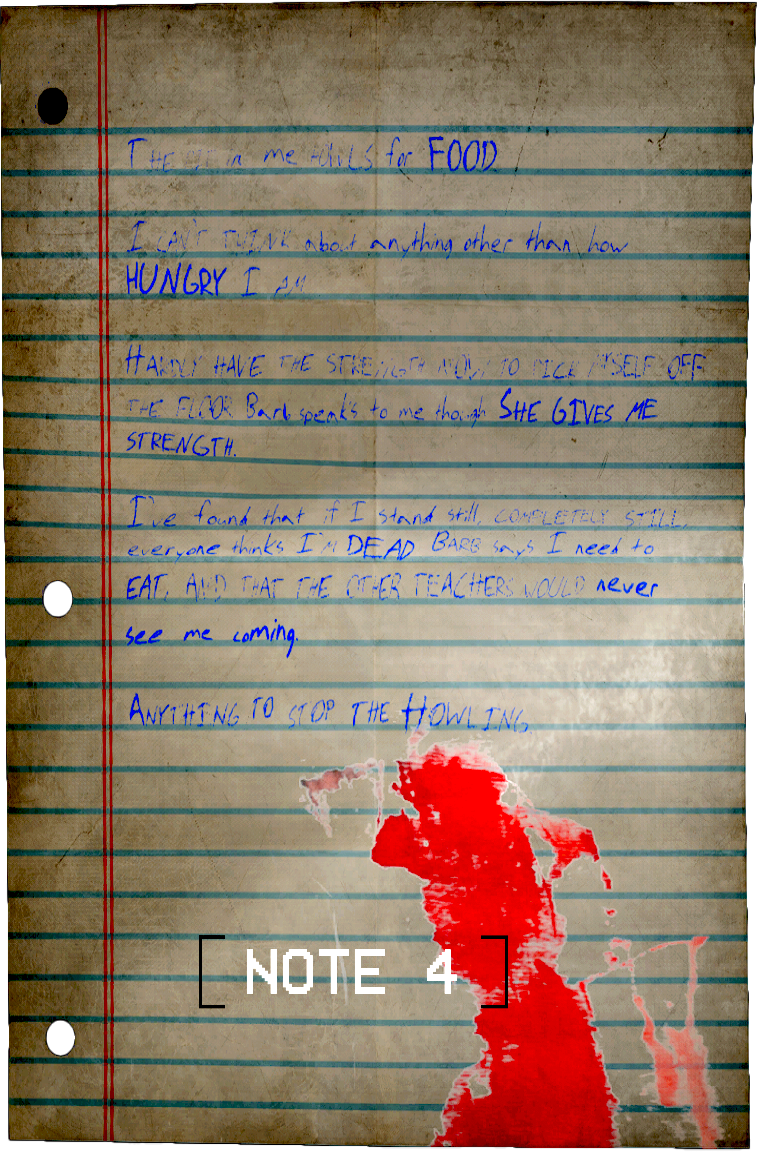 THE PIT in me HOWLS for FOOD
I CAN'T THINK about anything other than how
HUNGRY I AM
HARDLY HAVE THE STRENGTH NOW TO PICK MYSELF OFF
THE FLOOR Barb speaks to me though SHE GIVES ME
STRENGTH.
I've found that if I stand still, COMPLETELY STILL,
everyone thinks I'M DEAD BARB says I need to
EAT, AND THAT THE OTHER TEACHERS WOULD never
see me coming.
ANYTHING TO STOP THE HOWLING
[ NOTE 4 ]